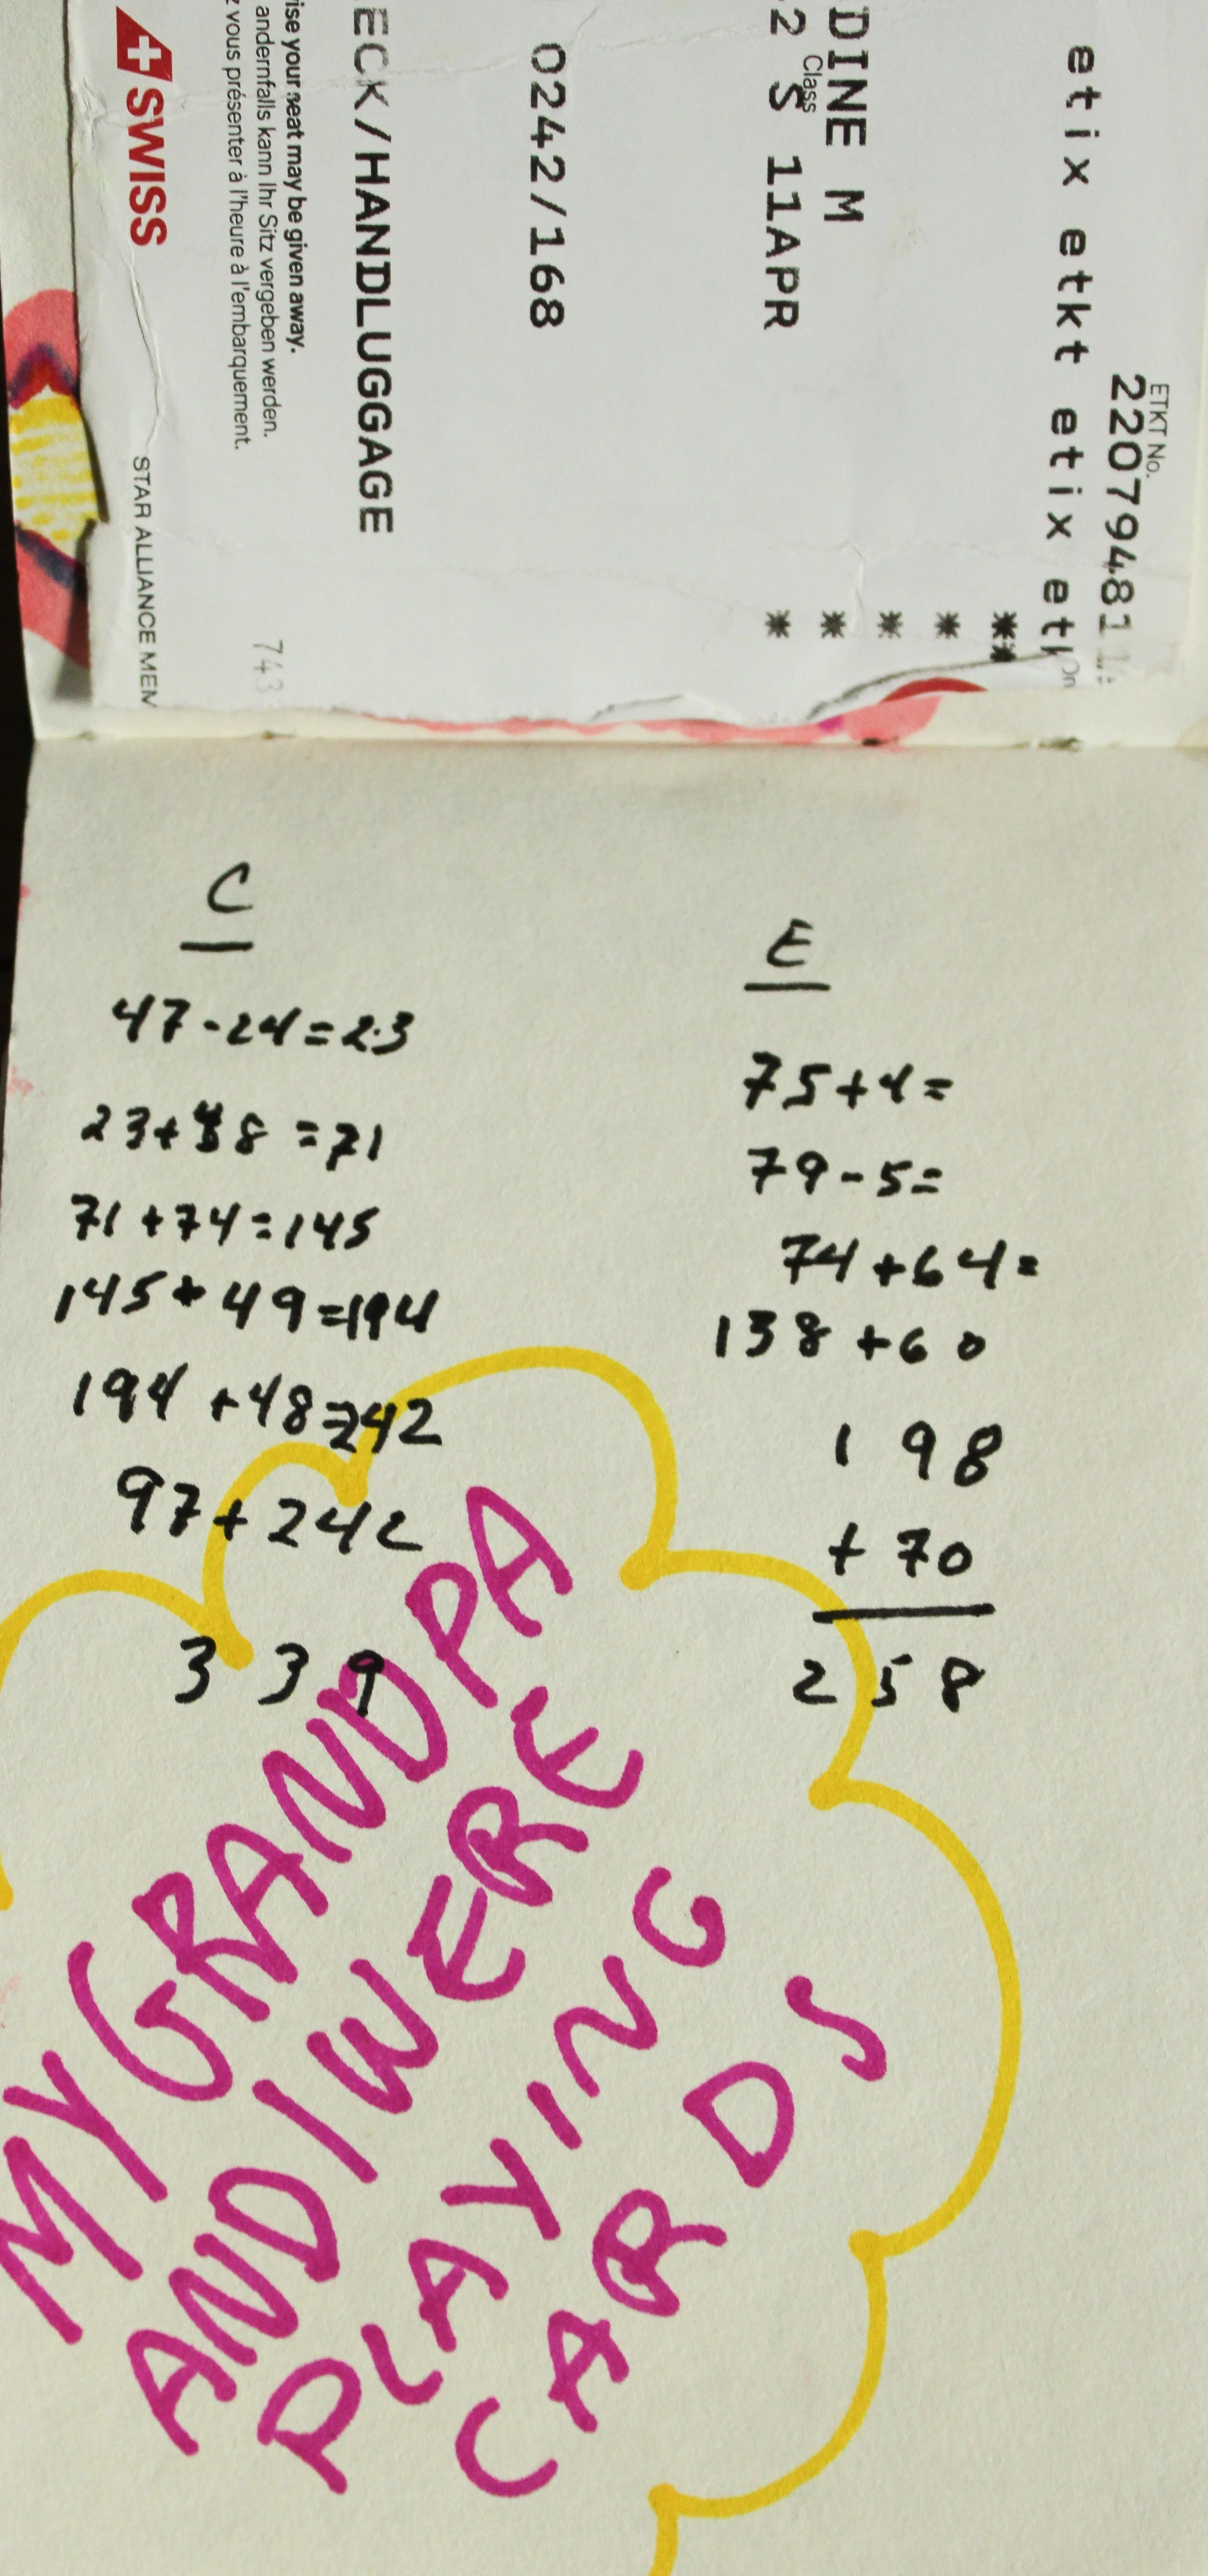 etix etkt etix etk
ETKT No.
22079481
DINE M
Class
2 S 11APR
0242/168
ECK/HANDLUGGAGE
ise your seat may be given away.
andernfalls kann Ihr Sitz vergeben werden.
z vous présenter à l'heure à l'embarquement.
743
SWISS
STAR ALLIANCE MEM
C
47-24=23
23+48=71
71+74=145
145+49=194
194+48=242
97+242
339
E
75+4=
79-5=
74+64=
138+60
198
+70
258
MY GRANDPA
AND I WERE
PLAYING
CARDS